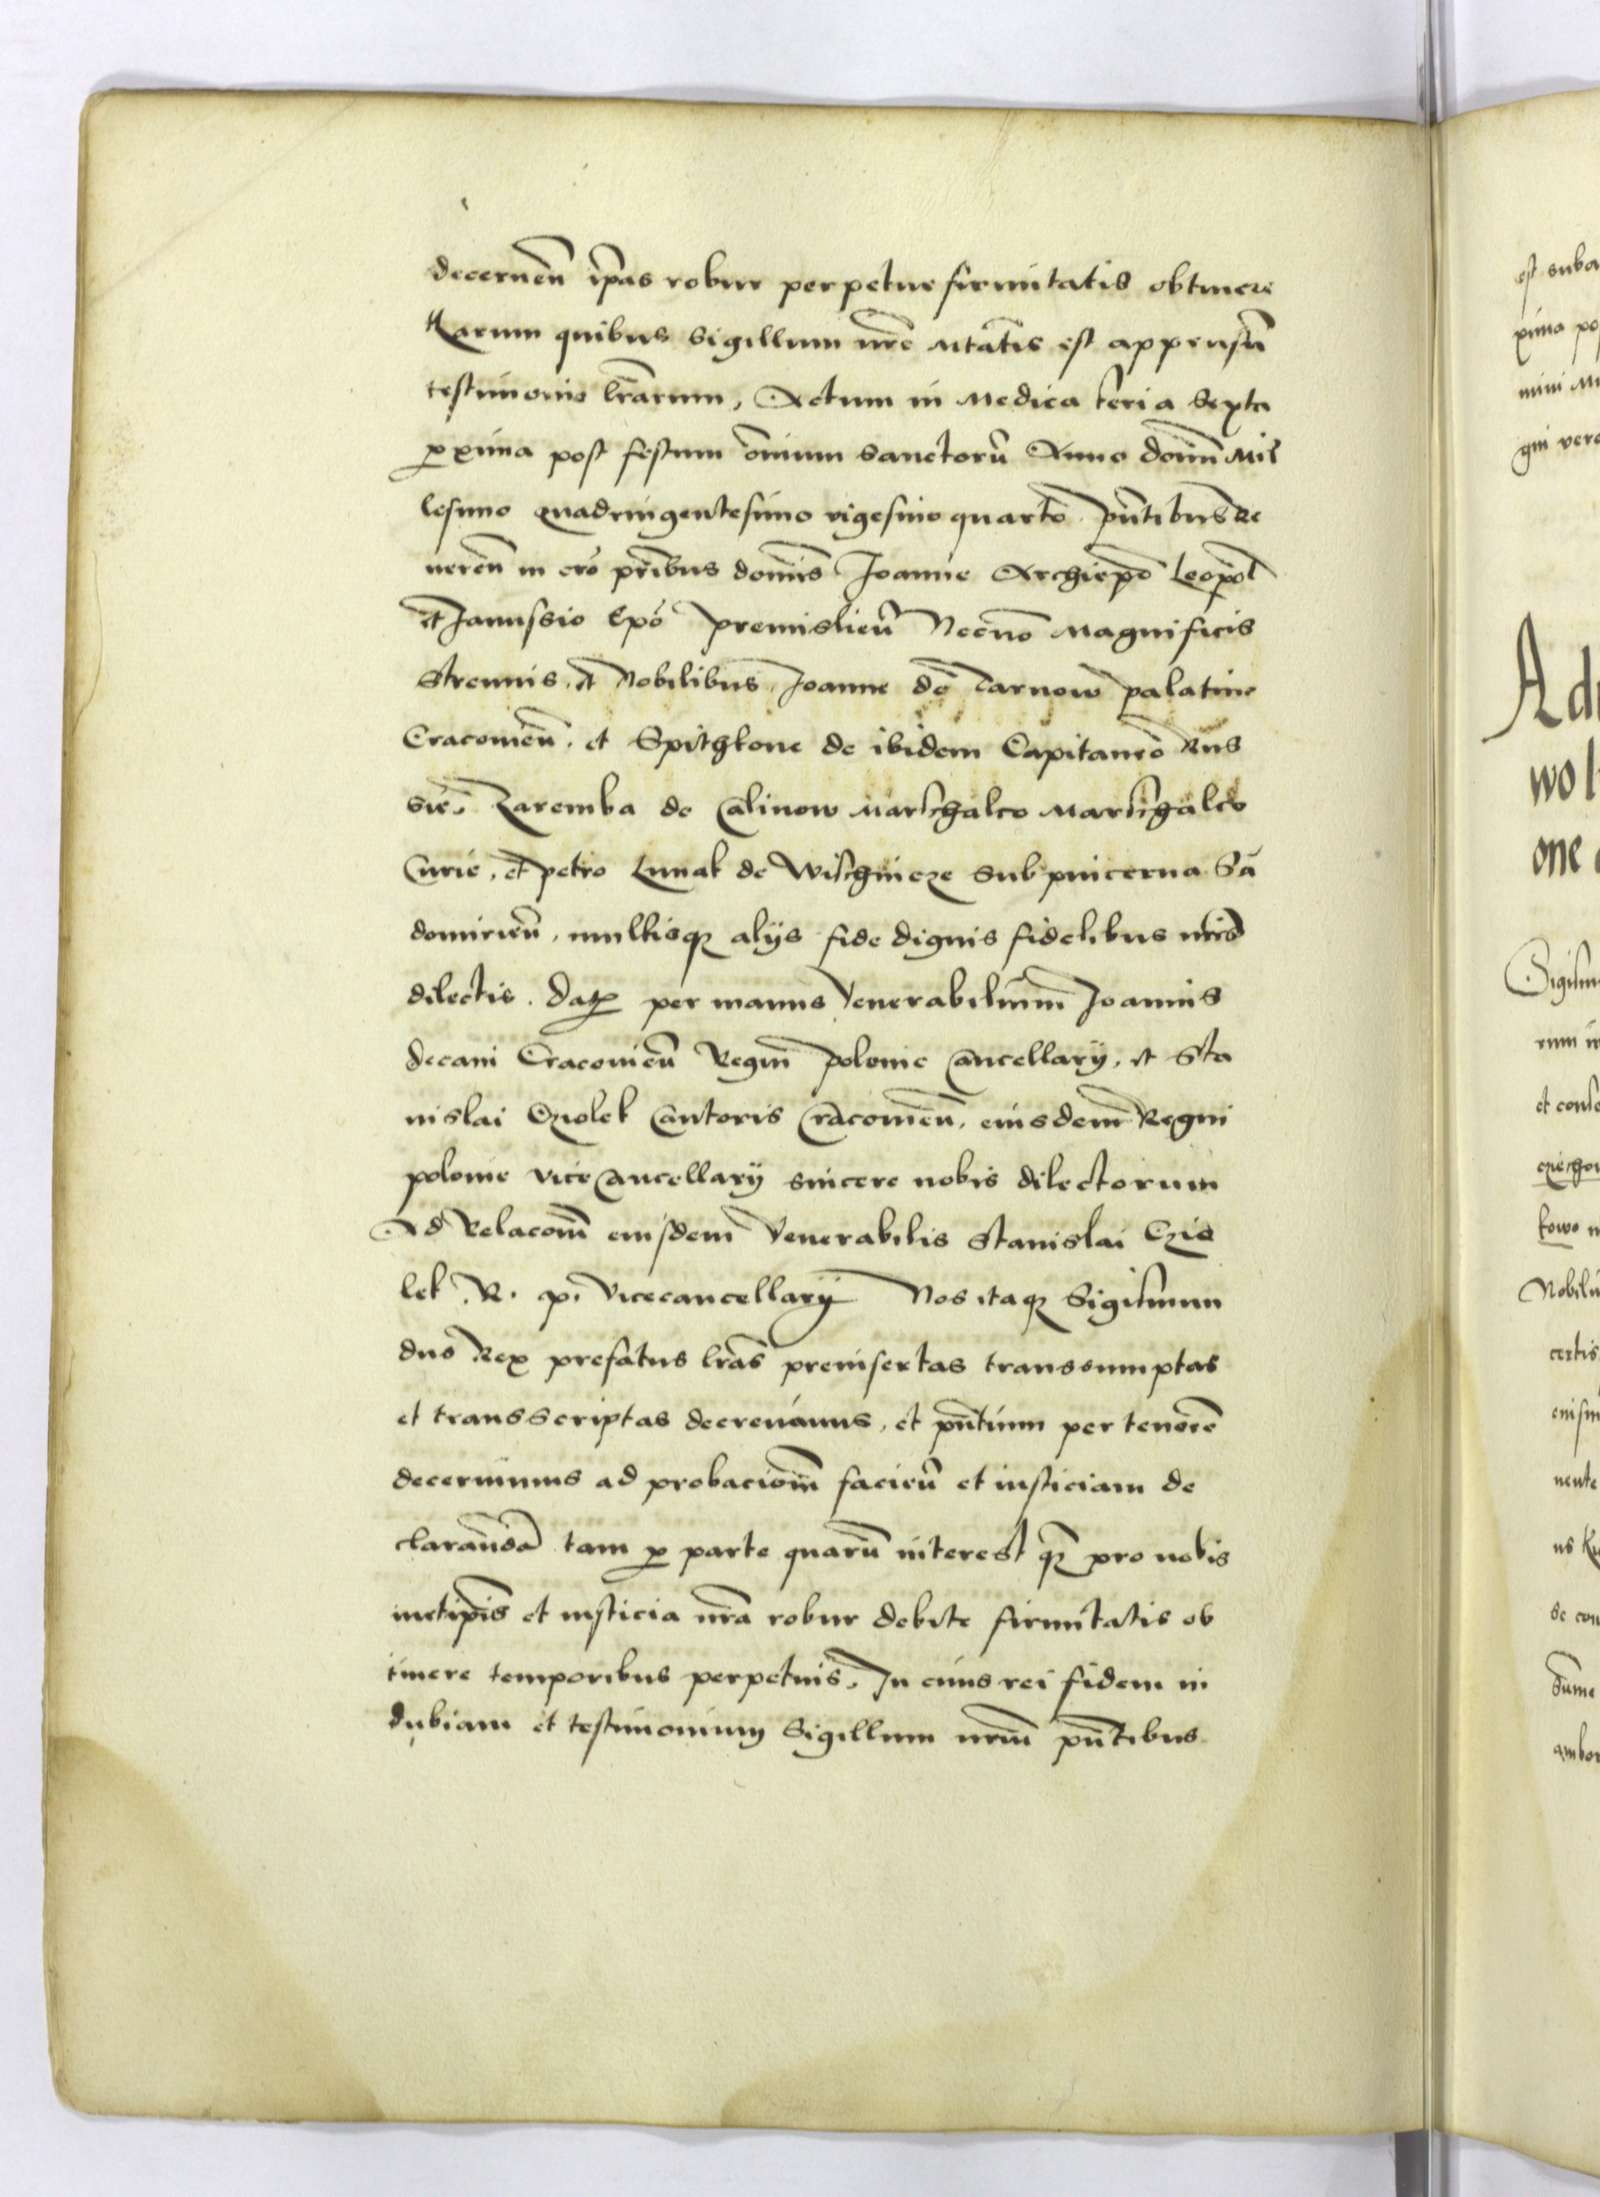 decernen̄ ip̄as robur perpetue firmitatis obtinere
Harum quibus Sigillum nr̄e Mtātis est appensū
testimonio lrārum, Actum in Medica feria Sexta
proxima post festum ōnium Sanctorū Anno domī Mil
lesimo quadringentesimo vigesimo quarto. pn̄tibus Re
veren̄ in cro p̄ribus dominis Joanne Archiep̄o Leopol̄
et Janussio Ep̄o premislien̄ Necnō Magnificis
Strennuis. et Nobilibus. Joanne de Tarnow palatino
Cracovien̄. et Spithkone de ibidem Capitaneo Rus
sie. Zaremba de Calinow Marschalco Marschalco
Curie, et petro Lunak de Wischnicze Subpincerna Sā
domirien̄, multisque alijs fide dignis fidelibus nr̄is
dilectis. Datum per manus Venerabilium Joannis
decani Cracovien̄ Regni polonie Cancellarij. et Sta
nislai Cziolek Cantoris Cracovien̄. eiusdem Regni
polonie vice Cancellarij sincere nobis dilectorum
Ad Relacōm eiusdem Venerabilis Stanislai Czio
lek .R. p. Vicecancellarij Nos itaque Sigismun
dus Rex prefatus lrās preinsertas transsumptas
et transscriptas decrevimus, et pn̄tium per tenorē
decernimus ad probaciōm facien̄ et iusticiam de
clarandā tam pro parte quarū interest quam pro nobis
metip̄is et iusticia nr̄a robur debite firmitatis ob
tinere temporibus perpetuis. In cuius rei fidem in
dubiam et testimonium Sigillum nr̄m pn̄tibus